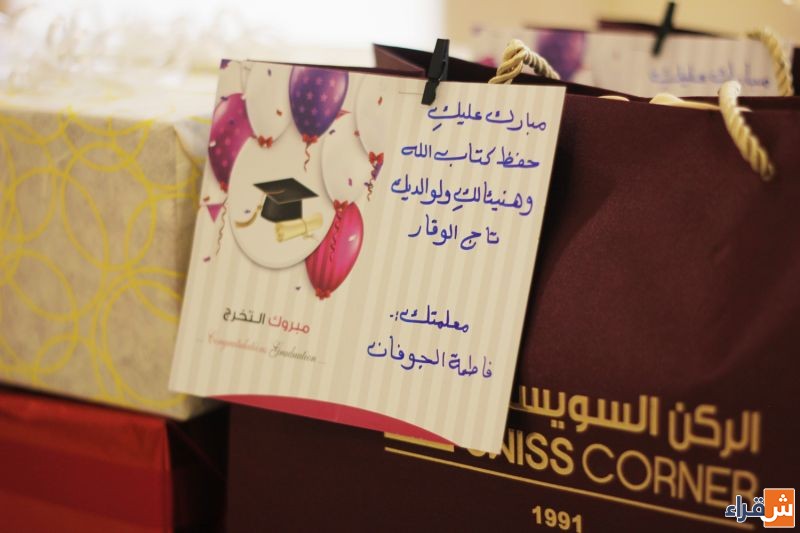 مبارك عليكِ
حفظ كتاب الله
وهنيئالكِ ولوالديك
تاج الوقار
معلمتك:.
فاطمة الجوفان
مبروك التخرج
Congratulations Graduation
الركن السويس
SWISS CORNER
1991
شقراء